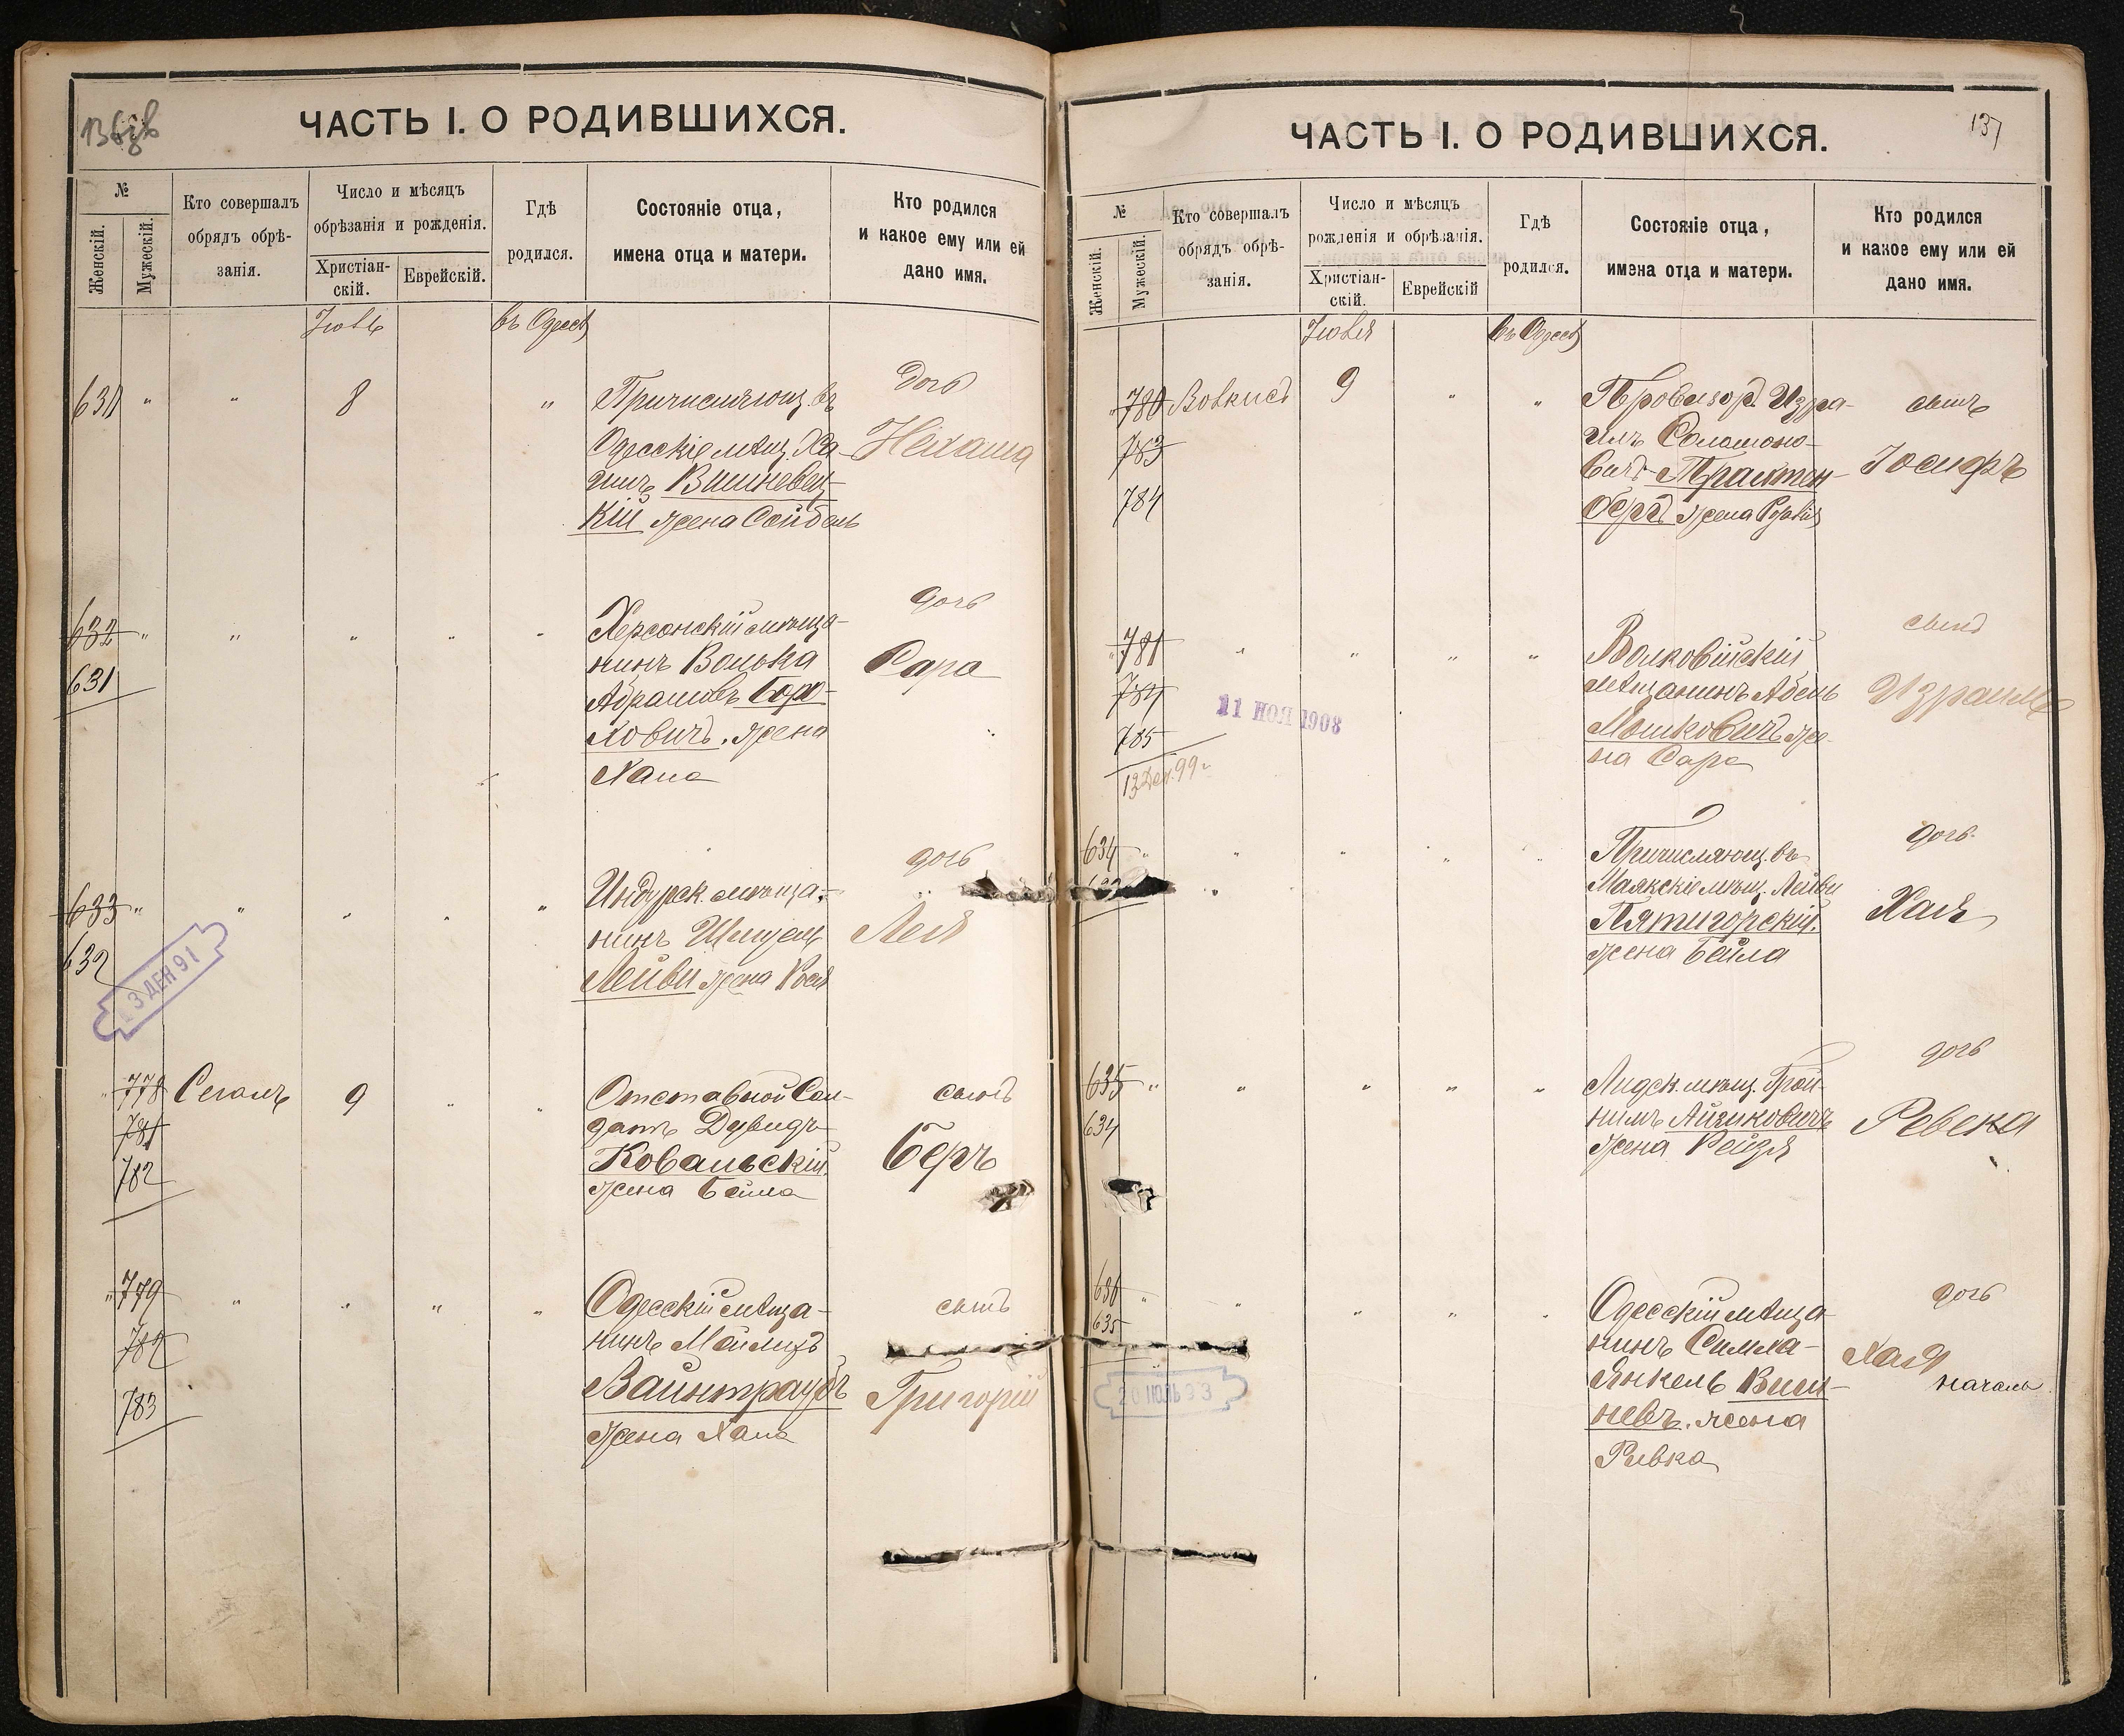 ЧАСТЬ I. О РОДИВШИХСЯ.
№
Женскій.
Мужескій.
Кто совершалъ
обрядъ обрѣ-
занія.
Число и мѣсяцъ
обрѣзанія и рожденія.
Христіан-
скій.
Еврейскій.
Гдѣ
родился.
Состояніе отца,
имена отца и матери.
Кто родился
и какое ему или ей
дано имя.
въ Одессѣ
8
Причисляющ. въ
Одесскіе мѣщ. Ха-
имъ Вишневец-
кій жена Сойбель
дочь
Нехама
632
631
Херсонскій мѣща-
нинъ Волька
Абрамовъ Бор-
ховичъ. жена
Хана
дочь
Сара
633
632
3 ДЕК 91
Индурск. мѣща-
нинъ
Лейви жена
дочь
Лея
778
781
782
Сегаль
9
Отставной Сол-
датъ Дувидъ
Ковальскій
жена Бейла
сынъ
Беръ
779
782
783
Одесскій мѣща-
нинъ
Вайнтраубъ
жена Хана
сынъ
Григорій
ЧАСТЬ I. О РОДИВШИХСЯ.
137
№
Женскій.
Мужескій.
Кто совершалъ
обрядъ обрѣ-
занія.
Число и мѣсяцъ
рожденія и обрѣзанія.
Христіан-
скій.
Еврейскій
Гдѣ
родился.
Состояніе отца,
имена отца и матери.
Кто родился
и какое ему или ей
дано имя.
въ Одессѣ
780
783
784
9
Провизор. Изра-
иль Соломоно-
вичъ Трахтен-
бергъ жена
сынъ
Іосифъ
781
784
785
11 НОЯ 1908
13 Дек. 99 г.
Волковійскій
мѣщанинъ Абель
Мошковичъ же-
на Сара
сынъ
Израиль
634
633
Причисляющ. въ
Маякскіе мѣщ. Лейви
Пятигорскій.
жена Бейла
дочь
Хая
635
634
Лидск. мѣщ. Трой-
нимъ Айзиковичъ
жена Рейзя
дочь
Ревека
636
635
Одесскій мѣща-
нинъ Симха-
Янкель Виш-
невъ. жена
Ривка
дочь
Хая